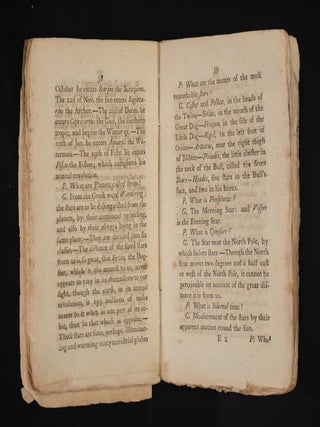 38
October he enters Scorpio the Scorpion.
The 22d of Nov. the sun enters Sagitta-
rius the Archer.—The 22d of Decm. he
enters Capricornus the Goat, the southern
tropic, and begins the Winter qr.—The
20th of Jan. he enters Aquarius the Wa-
terman.—The 19th of Feb. he enters
Pisces the Fishes; which completes his
annual revolution.
P. What are Planets called from?
G. From the Greek word Wandering
the stars are to be distinguished from the
planets, by their continual twinkling,
and also by their always being in the
same place;—They are divided into six
classes.—The distance of the fixed stars
from us is so great, that Sirius, the Dog-
star, which is the nearest to us, never
appears to vary in its dimensions to our
sight, though the earth, in its annual
revolution, is 195 millions of miles
nearer to it when in one part of its or-
bit, than in that which is opposite.—
Those stars are suns, perhaps, illuminat-
ing and warming many terrestrial globes
39
P. What are the names of the most
remarkable stars?
G. Castor and Pollux, in the heads of
the Twins—Sirius, in the mouth of the
Great Dog—Procyon, in the side of the
Little Dog—Rigel, in the left foot of
Orion—Arcturus, near the right thigh
of Böotes—Pleiades, the little cluster in
the neck of the Bull, called the Seven
Stars—Hyades, five stars in the Bull's
face, and two in his horns.
P. What is Phosphorus?
G. The Morning Star: and Vesper
is the Evening Star.
P. What is Cynosura?
G. The Star near the North Pole, by
which sailors steer—Though the North
Star moves two degrees and a half east
or west of the North Pole, it cannot be
perceivable on account of the great dis-
tance it is from us.
P. What is Sidereal time?
G. Measurement of the stars by their
apparent motion round the sun.
E 2 P. What